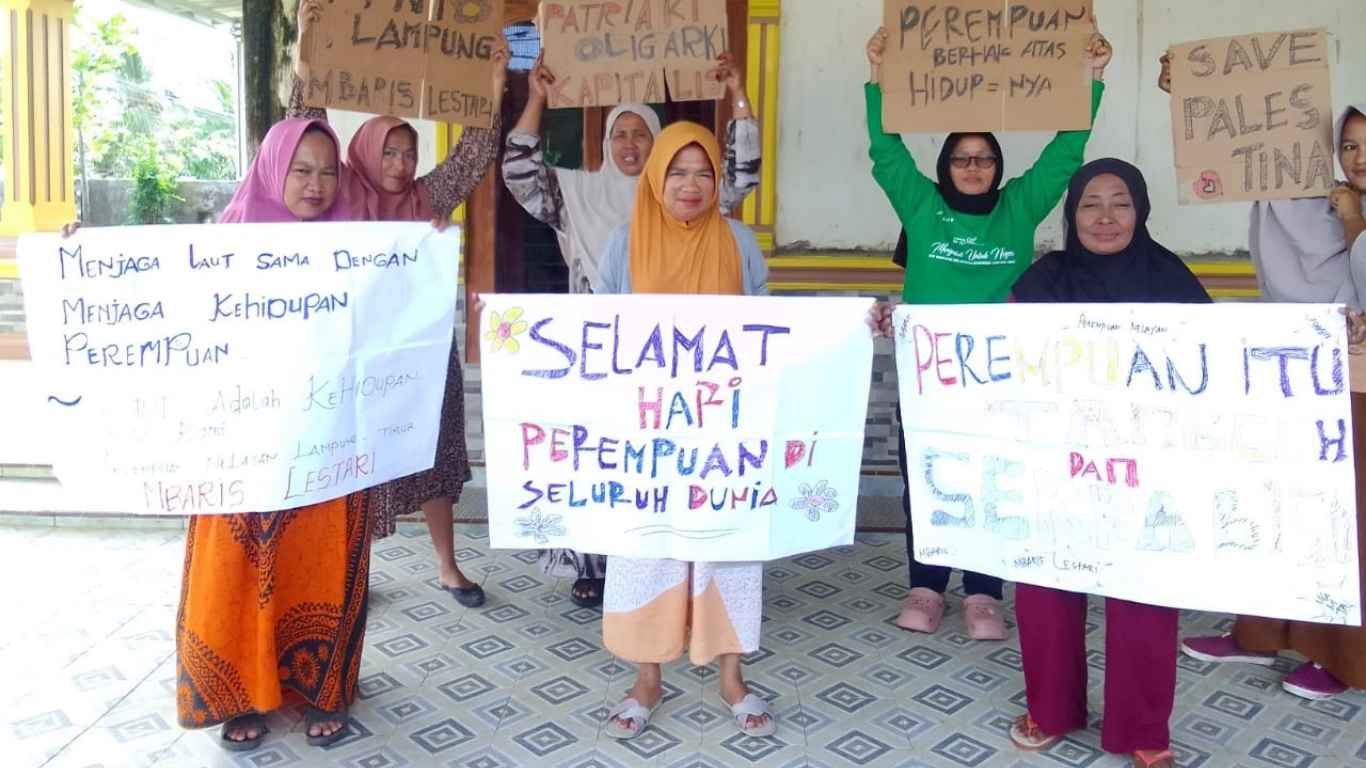 LAMPUNG
MBARIS LESTARI
PATRIARKI
OLIGARKI
KAPITALIS
PEREMPUAN
BERHAK ATAS
HIDUP=NYA
SAVE
PALES
TINA
MENJAGA LAUT SAMA DENGAN
MENJAGA KEHIDUPAN
PEREMPUAN
ADALAH KEHIDUPAN
NELAYAN LAMPUNG TIMUR
MBARIS LESTARI
SELAMAT
HARI
PEREMPUAN DI
SELURUH DUNIA
PEREMPUAN NELAYAN
PEREMPUAN ITU
DAN
MBARIS LESTARI